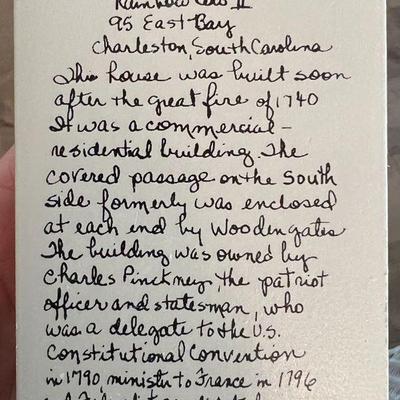 Rainbow Row II
95 East Bay
Charleston, South Carolina
This house was built soon
after the great fire of 1740
It was a commercial-
residential building. The
covered passage on the South
side formerly was enclosed
at each end by Wooden gates
The building was owned by
Charles Pinckney, the patriot
officer and statesman, who
was a delegate to the U.S.
Constitutional Convention
in 1790, minister to France in 1796
and Federalist candidate for